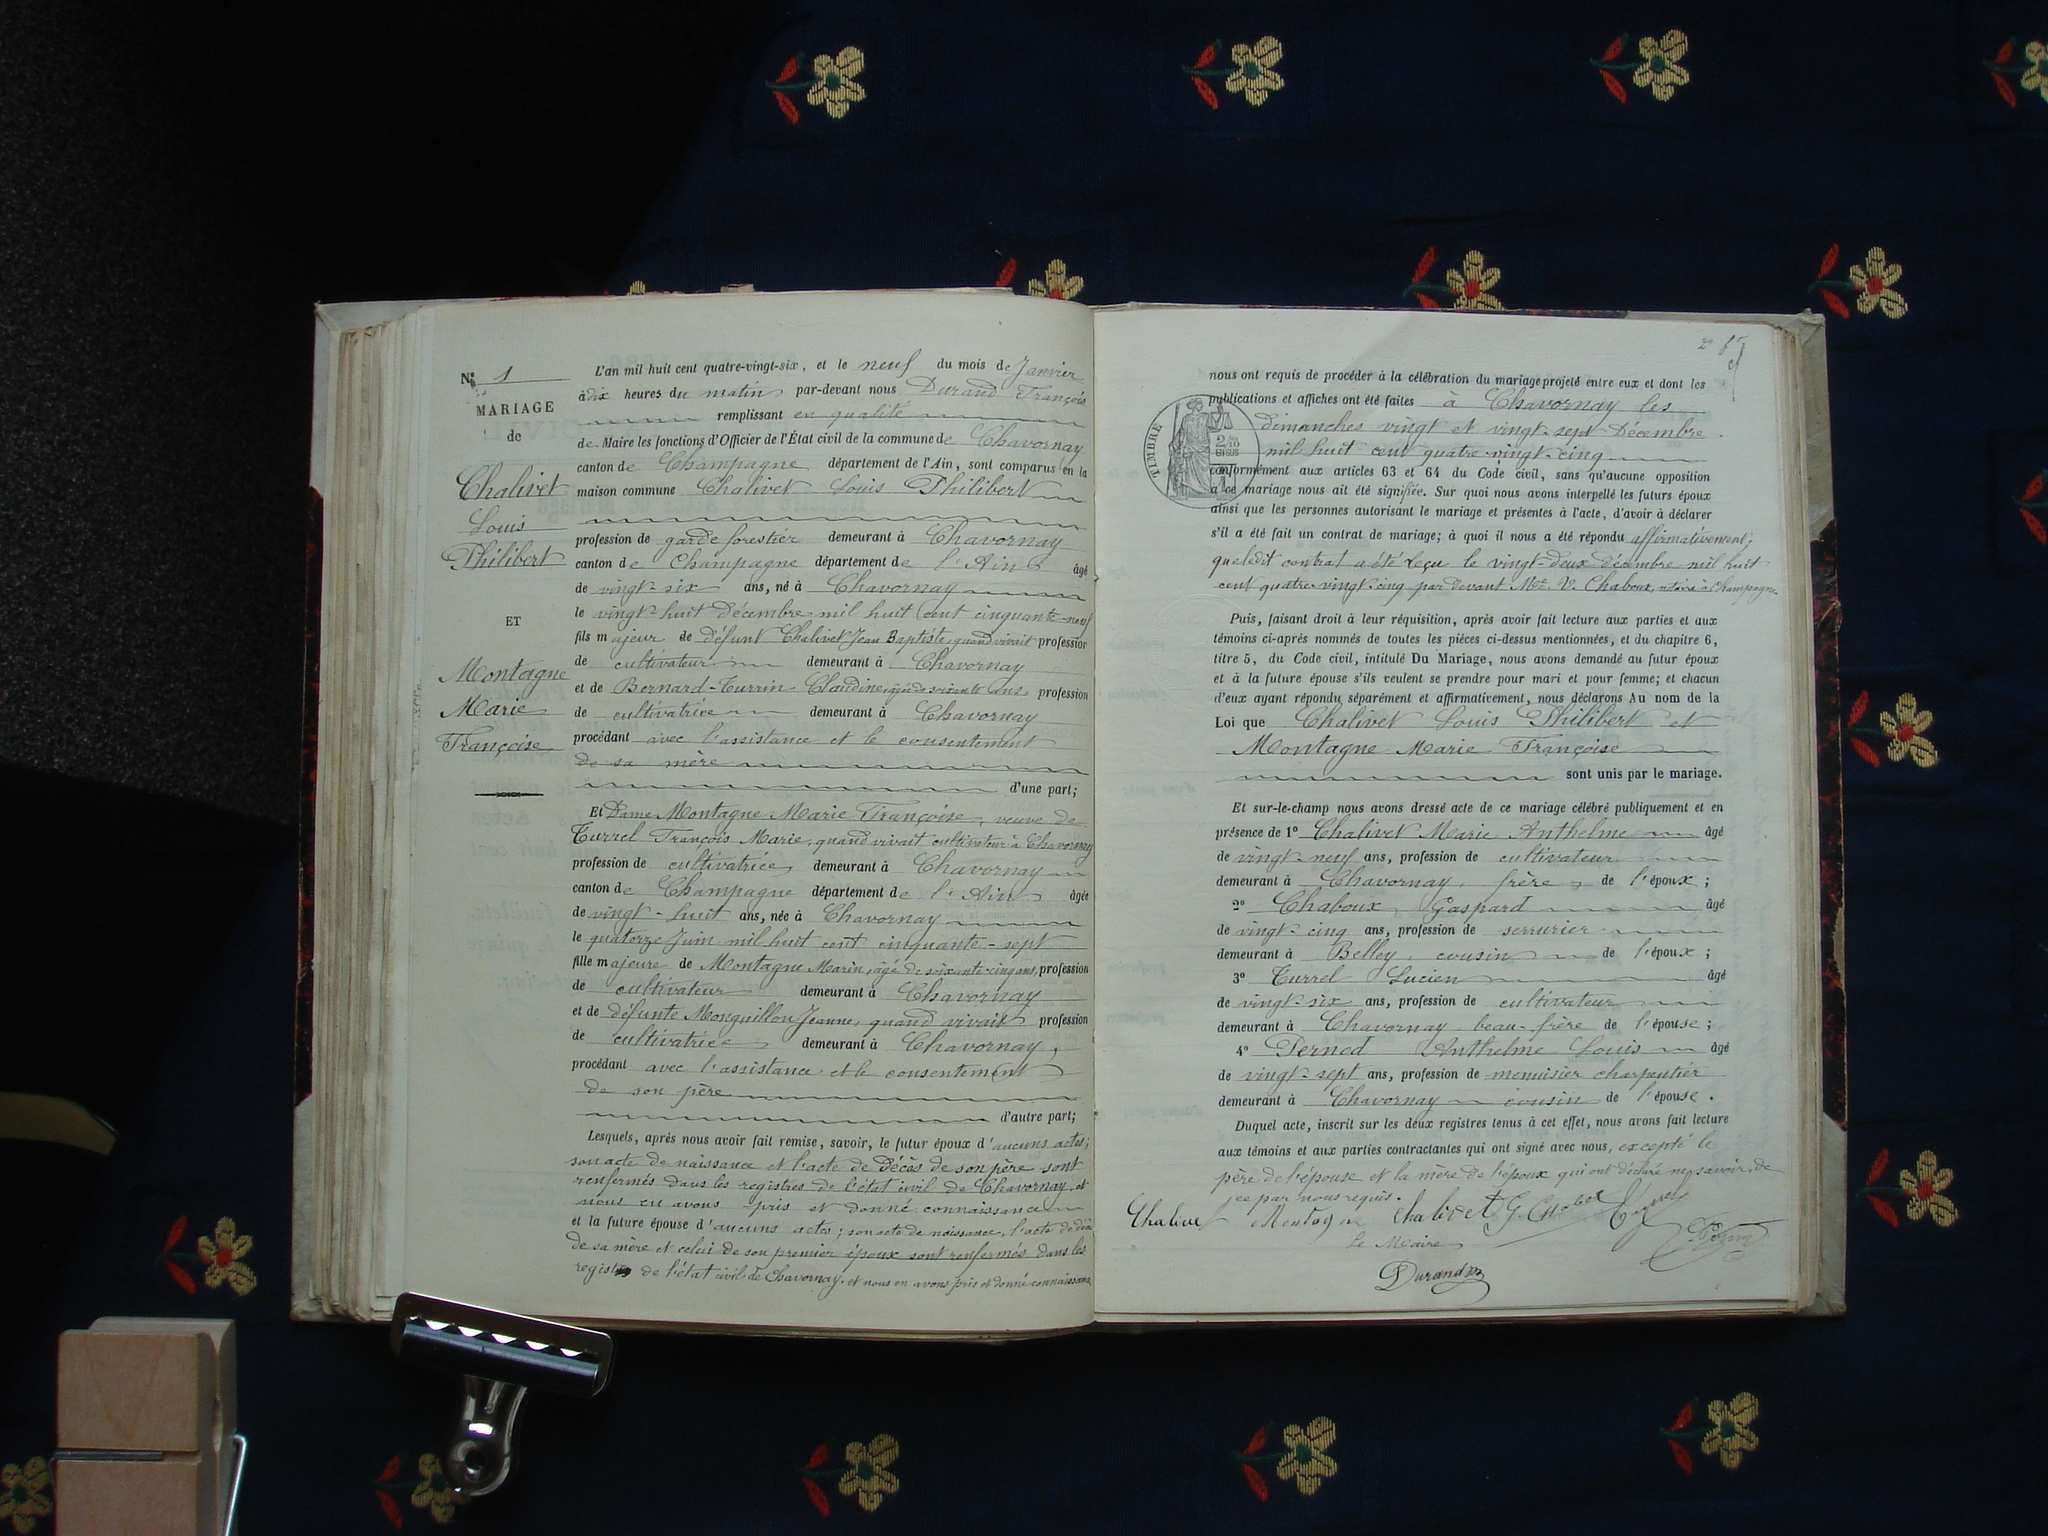 N° 1
MARIAGE
de
Chalivet
Louis
Philibert
ET
Montagne
Marie
Françoise
L'an mil huit cent quatre-vingt-six, et le neuf du mois de Janvier
à dix heures du matin par-devant nous Durand François
remplissant en qualité
de Maire les fonctions d'Officier de l'État civil de la commune de Chavornay
canton de Champagne département de l'Ain, sont comparus en la
maison commune Chalivet Louis Philibert
profession de garde forestier demeurant à Chavornay
canton de Champagne département de l'Ain âgé
de vingt-six ans, né à Chavornay
le vingt-huit Décembre mil huit cent cinquante-neuf
fils majeur de défunt Chalivet Jean Baptiste, quand vivait profession
de cultivateur demeurant à Chavornay
et de Bernard-Turrin Claudine, âgée de soixante ans, profession
de cultivatrice demeurant à Chavornay
procédant avec l'assistance et le consentement
de sa mère
d'une part;
Et Dame Montagne Marie Françoise, veuve de
Turrel François Marie, quand vivait cultivateur à Chavornay
profession de cultivatrice demeurant à Chavornay
canton de Champagne département de l'Ain âgée
de vingt-huit ans, née à Chavornay
le quatorze Juin mil huit cent cinquante-sept
fille majeure de Montagne Marin, âgé de soixante-cinq ans, profession
de cultivateur demeurant à Chavornay
et de défunte Monguillon Jeanne, quand vivait profession
de cultivatrice demeurant à Chavornay,
procédant avec l'assistance et le consentement
de son père
d'autre part;
Lesquels, après nous avoir fait remise, savoir, le futur époux d'aucuns actes;
son acte de naissance et l'acte de Décès de son père sont
renfermés dans les registres de l'état civil de Chavornay et
nous en avons pris et donné connaissance
et la future épouse d'aucuns actes; son acte de naissance, l'acte de
de sa mère et celui de son premier époux sont renfermés dans les
de l'état civil de Chavornay, et nous en avons pris et donné connaissance
2e
TIMBRE
nous ont requis de procéder à la célébration du mariage projeté entre eux et dont les
publications et affiches ont été faites à Chavornay les
dimanches vingt et vingt-sept Décembre
mil huit cent quatre-vingt-cinq
conformément aux articles 63 et 64 du Code civil, sans qu'aucune opposition
à ce mariage nous ait été signifiée. Sur quoi nous avons interpellé les futurs époux
ainsi que les personnes autorisant le mariage et présentes à l'acte, d'avoir à déclarer
s'il a été fait un contrat de mariage; à quoi il nous a été répondu affirmativement;
que ledit contrat a été reçu le vingt-deux décembre mil huit
cent quatre-vingt-cinq par devant Me V. Chaboux, notaire à Champagne.
Puis, faisant droit à leur réquisition, après avoir fait lecture aux parties et aux
témoins ci-après nommés de toutes les pièces ci-dessus mentionnées, et du chapitre 6,
titre 5, du Code civil, intitulé Du Mariage, nous avons demandé au futur époux
et à la future épouse s'ils veulent se prendre pour mari et pour femme; et chacun
d'eux ayant répondu séparément et affirmativement, nous déclarons Au nom de la
Loi que Chalivet Louis Philibert et
Montagne Marie Françoise
sont unis par le mariage.
Et sur-le-champ nous avons dressé acte de ce mariage célébré publiquement et en
présence de 1° Chalivet Marie Anthelme âgé
de vingt-neuf ans, profession de cultivateur
demeurant à Chavornay, frère de l'époux;
2° Chaboux Gaspard âgé
de vingt-cinq ans, profession de serrurier
demeurant à Belley, cousin de l'époux;
3° Turrel Lucien âgé
de vingt-six ans, profession de cultivateur
demeurant à Chavornay beau-frère de l'épouse;
4° Pernod Anthelme Louis âgé
de vingt-sept ans, profession de menuisier charpentier
demeurant à Chavornay cousin de l'épouse.
Duquel acte, inscrit sur les deux registres tenus à cet effet, nous avons fait lecture
aux témoins et aux parties contractantes qui ont signé avec nous, excepté le
père de l'épouse et la mère de l'époux qui ont déclaré ne savoir, de
ce par nous requis.
Chalivet Chalivet
Le Maire
Durand